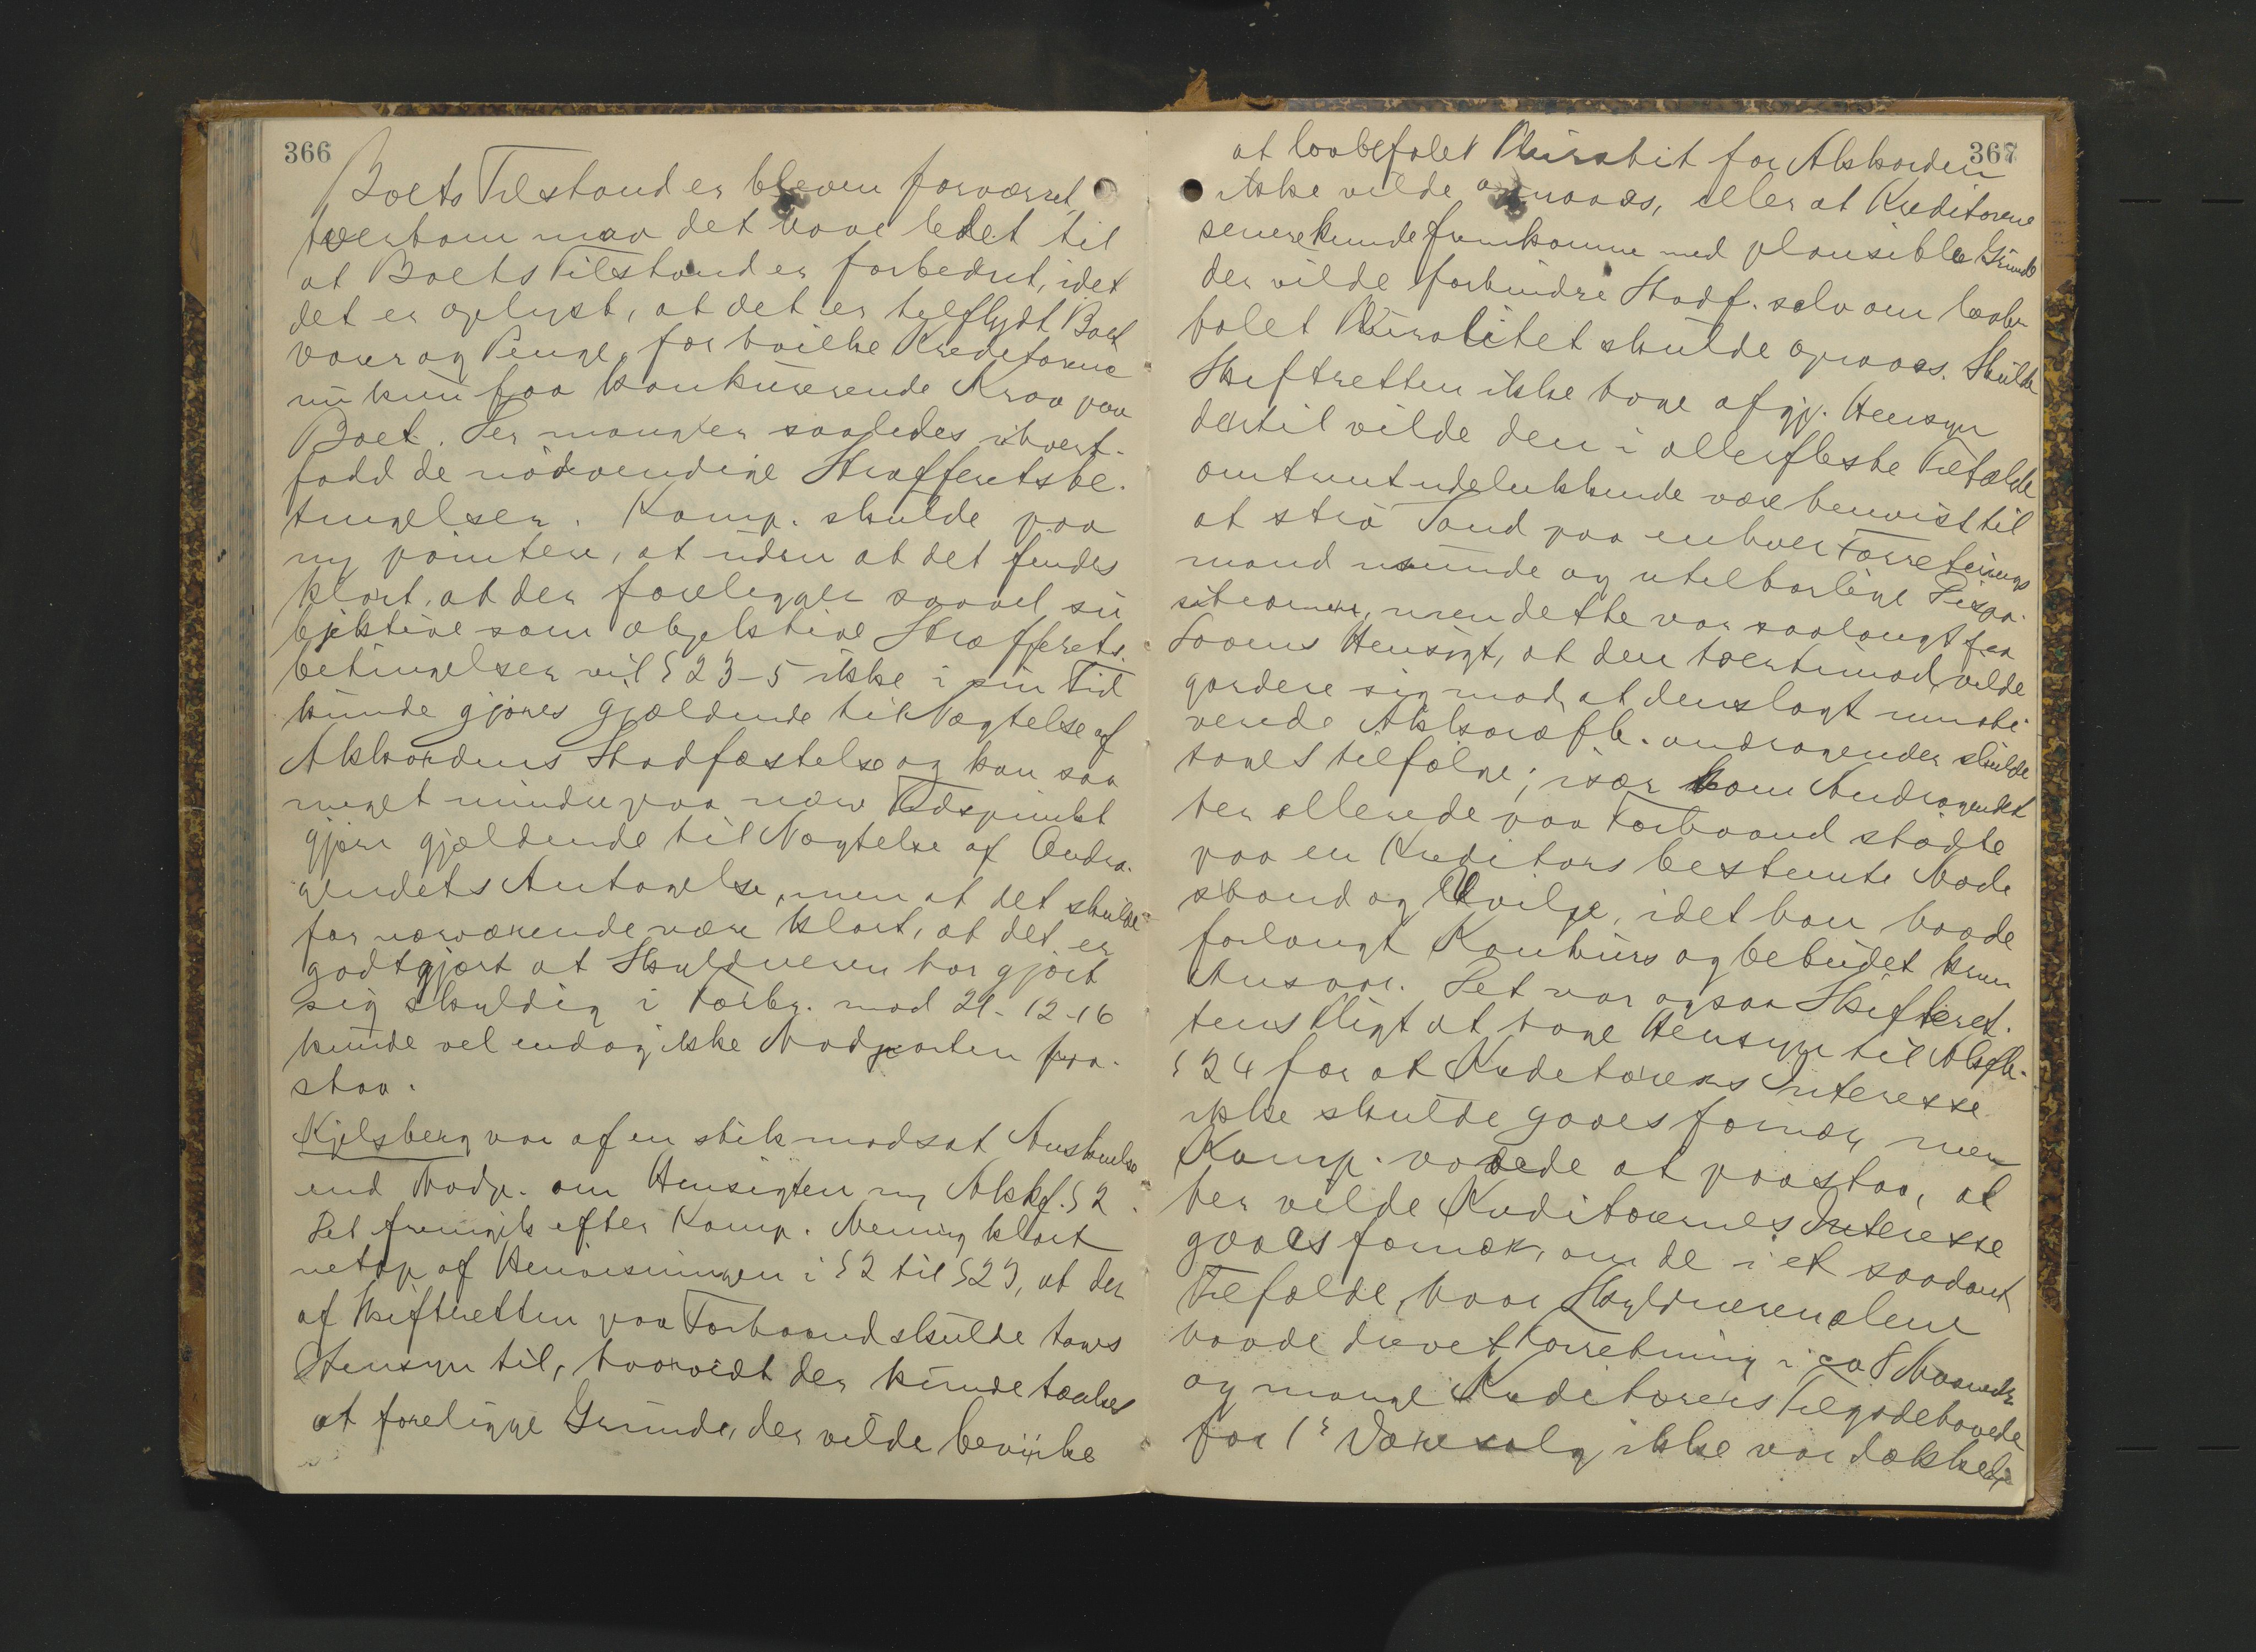 366
Boets Tilstand er bleven forværret,
tvertom maa det have ledet til
at Boets Tilstand er forbedret, idet
det er oplyst, at det er tilflydt Boet
varer og Penge, for hvilke Kreditorene
nu kun faa konkurerende Krav paa
Boet. Der mangler saaledes ihvert-
fald de nödvendige Strafferetsbe-
tingelser. Komp. skulde paa
ny pointere, at uden at det findes
klart, at der foreligger saavel su
bjektive som objektive Strafferets-
betingelser vil § 23-5 ikke i sin Tid
kunde gjöres gjældende til Nægtelse af
Akkordens Stadfæstelse og kan saa
meget mindre paa nærv Tidspunkt
gjöre gjældende til Nægtelse af Andra-
gendets Antagelse, men at det skulde
for nærværende være klart, at det er
godtgjort at Skyldneren har gjört
sig skyldig i Forbr. mod 21-12-16
kunde vel endog ikke Modparten paa-
staa.
Kjelsberg var af en stik modsat Anskuelse
end Modp. om Hensigten m Akkf. § 2.
Det fremgik efter Komp. Mening klart
netop af Henvisningen i § 2 til § 23, at der
af Skifteretten paa Forhaand skulde tages
Hensyn til, hvorvidt der kunde tænkes
at foreligge Grunde, der vilde bevirke
367
at lovbefalet Pluralitet for Akkorden
ikke vilde opnaaes, eller at Kreditorene
senere kunde fremkomme med plausible Grunde
der vilde forhindre Stadf. selv om lovbe
falet Pluralitet skulde opnaaes. Skulde
Skifteretten ikke have afgj. Hensyn
dertil vilde den i allerfleste Tilfælde
omtrent udelukkende være henvist til
at strö Sand paa enhver Forretnings
mand usunde og utilbörlige Dispo-
sitioner, men dette var saalangt fra
Lovens Hensigt, at den tvertimod vilde
gardere sig mod, at denslags
Akkordfh. andragender skulde
tages tilfölge; især som Andragendet
her allerede paa Forhaand stödte
paa en Kreditors bestemte Mod-
stand og Uvilje, idet han havde
forlangt Konkurs og bebudet krim
Ansvar. Det var ogsaa Skifteret-
tens Pligt at have Hensyn til Akkfh.
§ 24 for at Kreditorenes Interesse
ikke skulde gaaes fornær, men
Komp. vovede at paastaa, at
her vilde Kreditorernes Interesse
gaaes fornær, om de i et saadant
Tilfælde, hvor Skyldneren alene
havde drevet Forretning i ca 8 Maaneder
og mange Kreditorers Tilgodehavende
for 1' Varesalg ikke var dækket,